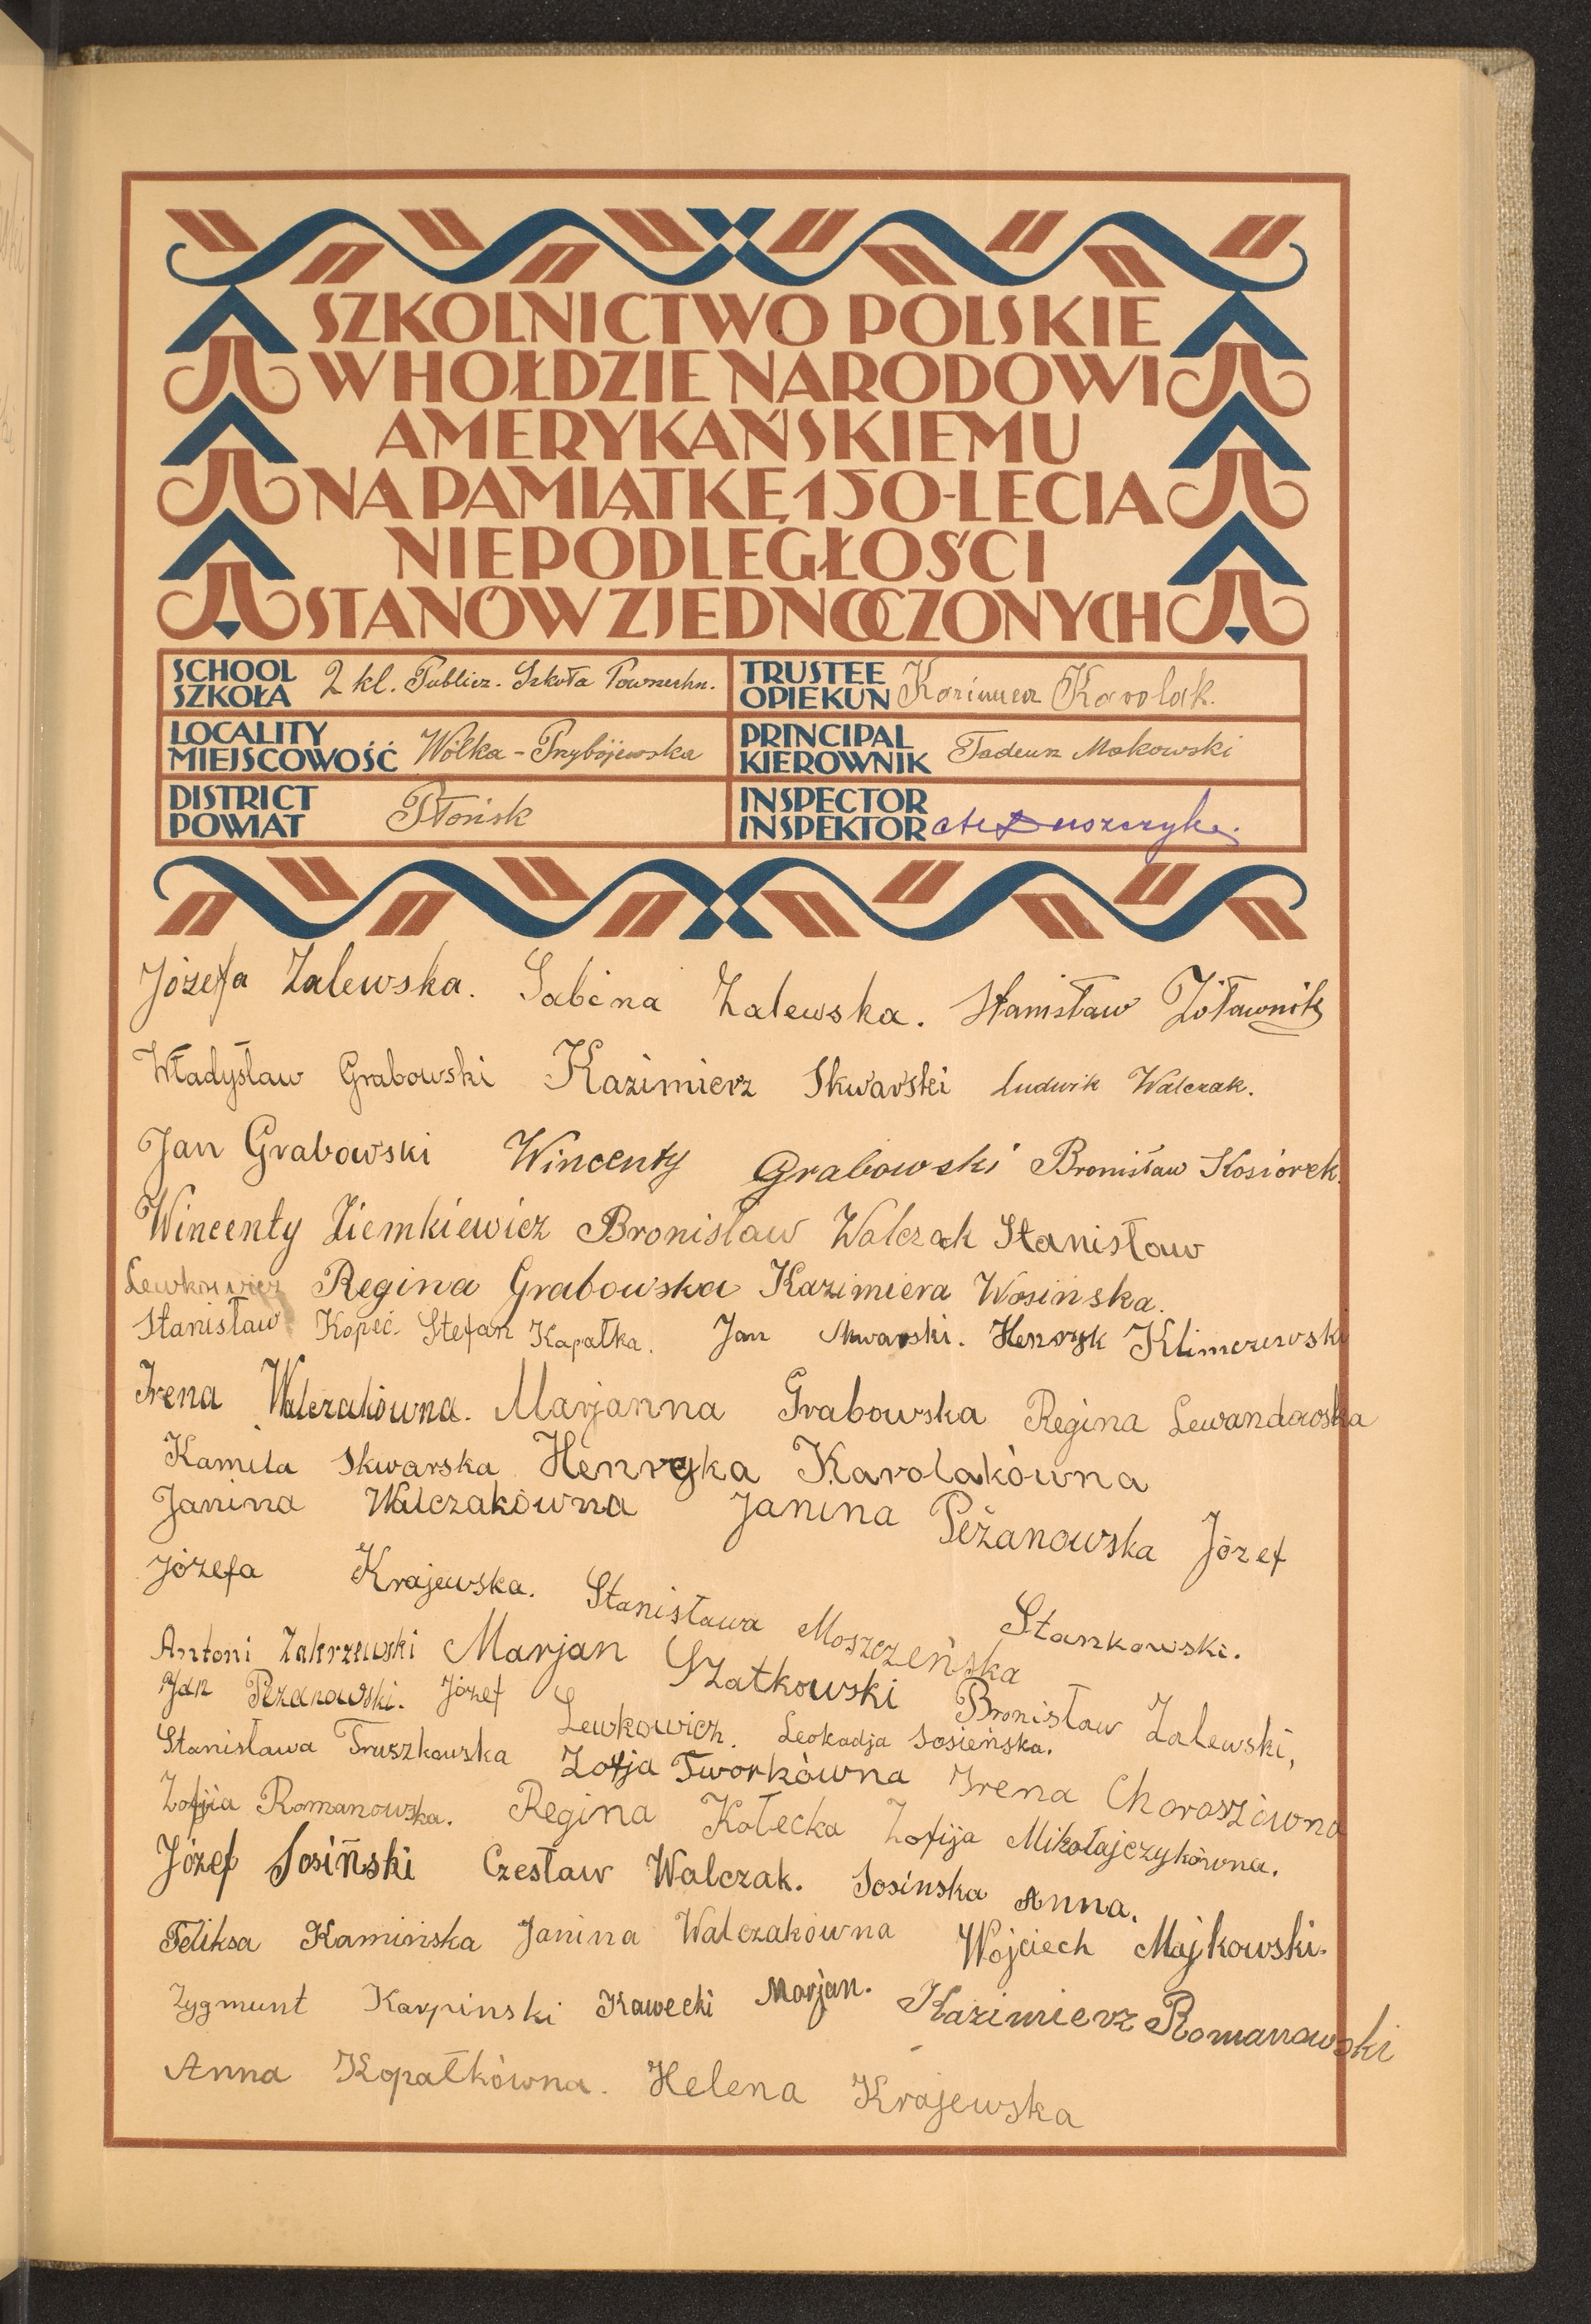 SZKOLNICTWO POLSKIE
W HOŁDZIE NARODOWI
AMERYKAŃSKIEMU
NA PAMIĄTKĘ 150-LECIA
NIEPODLEGŁOŚCI
STANÓW ZJEDNOCZONYCH
SCHOOL
SZKOŁA 2 kl. Publicz. Szkoła Powszechn.
TRUSTEE
OPIEKUN Kazimierz Karolak.
LOCALITY
MIEJSCOWOŚĆ Wólka-Przybójewska
PRINCIPAL
KIEROWNIK Tadeusz Makowski
DISTRICT
POWIAT Płońsk
INSPECTOR
INSPEKTOR
Józefa Zalewska. Sabina Zalewska. Stanisław Żóławnik
Władysław Grabowski Kazimierz Skwarski Ludwik Walczak.
Jan Grabowski Wincenty Grabowski Bronisław Kosiorek.
Wincenty Ziemkiewicz Bronisław Walczak Stanisław
Lewkowicz Regina Grabowska Kazimiera Wosińska.
Stanisław Kopeć. Stefan Kapałka. Jan Skwarski. Henryk Klimczewski
Irena Walczakówna. Marjanna Grabowska Regina Lewandowska
Kamila Skwarska Henryka Karolakówna
Janina Walczakówna Janina Peżanowska Józef
Józefa Krajewska. Stanisława Moszczeńska Stankowski.
Antoni Zakrzewski Marjan Szatkowski Bronisław Zalewski,
Jan Pezanowski. Józef Lewkowicz. Leokadja Sosieńska.
Stanisława Truszkowska Zofja Tworkówna Irena Choroszówna
Zofjia Romanowska. Regina Kołecka Zofija Mikołajczykówna.
Józef Sosiński Czesław Walczak. Sosinska Anna.
Feliksa Kamińska Janina Walczakówna Wojciech Majkowski.
Zygmunt Karpinski Kawecki Marjan. Kazimierz Romanowski
Anna Kopałkówna. Helena Krajewska